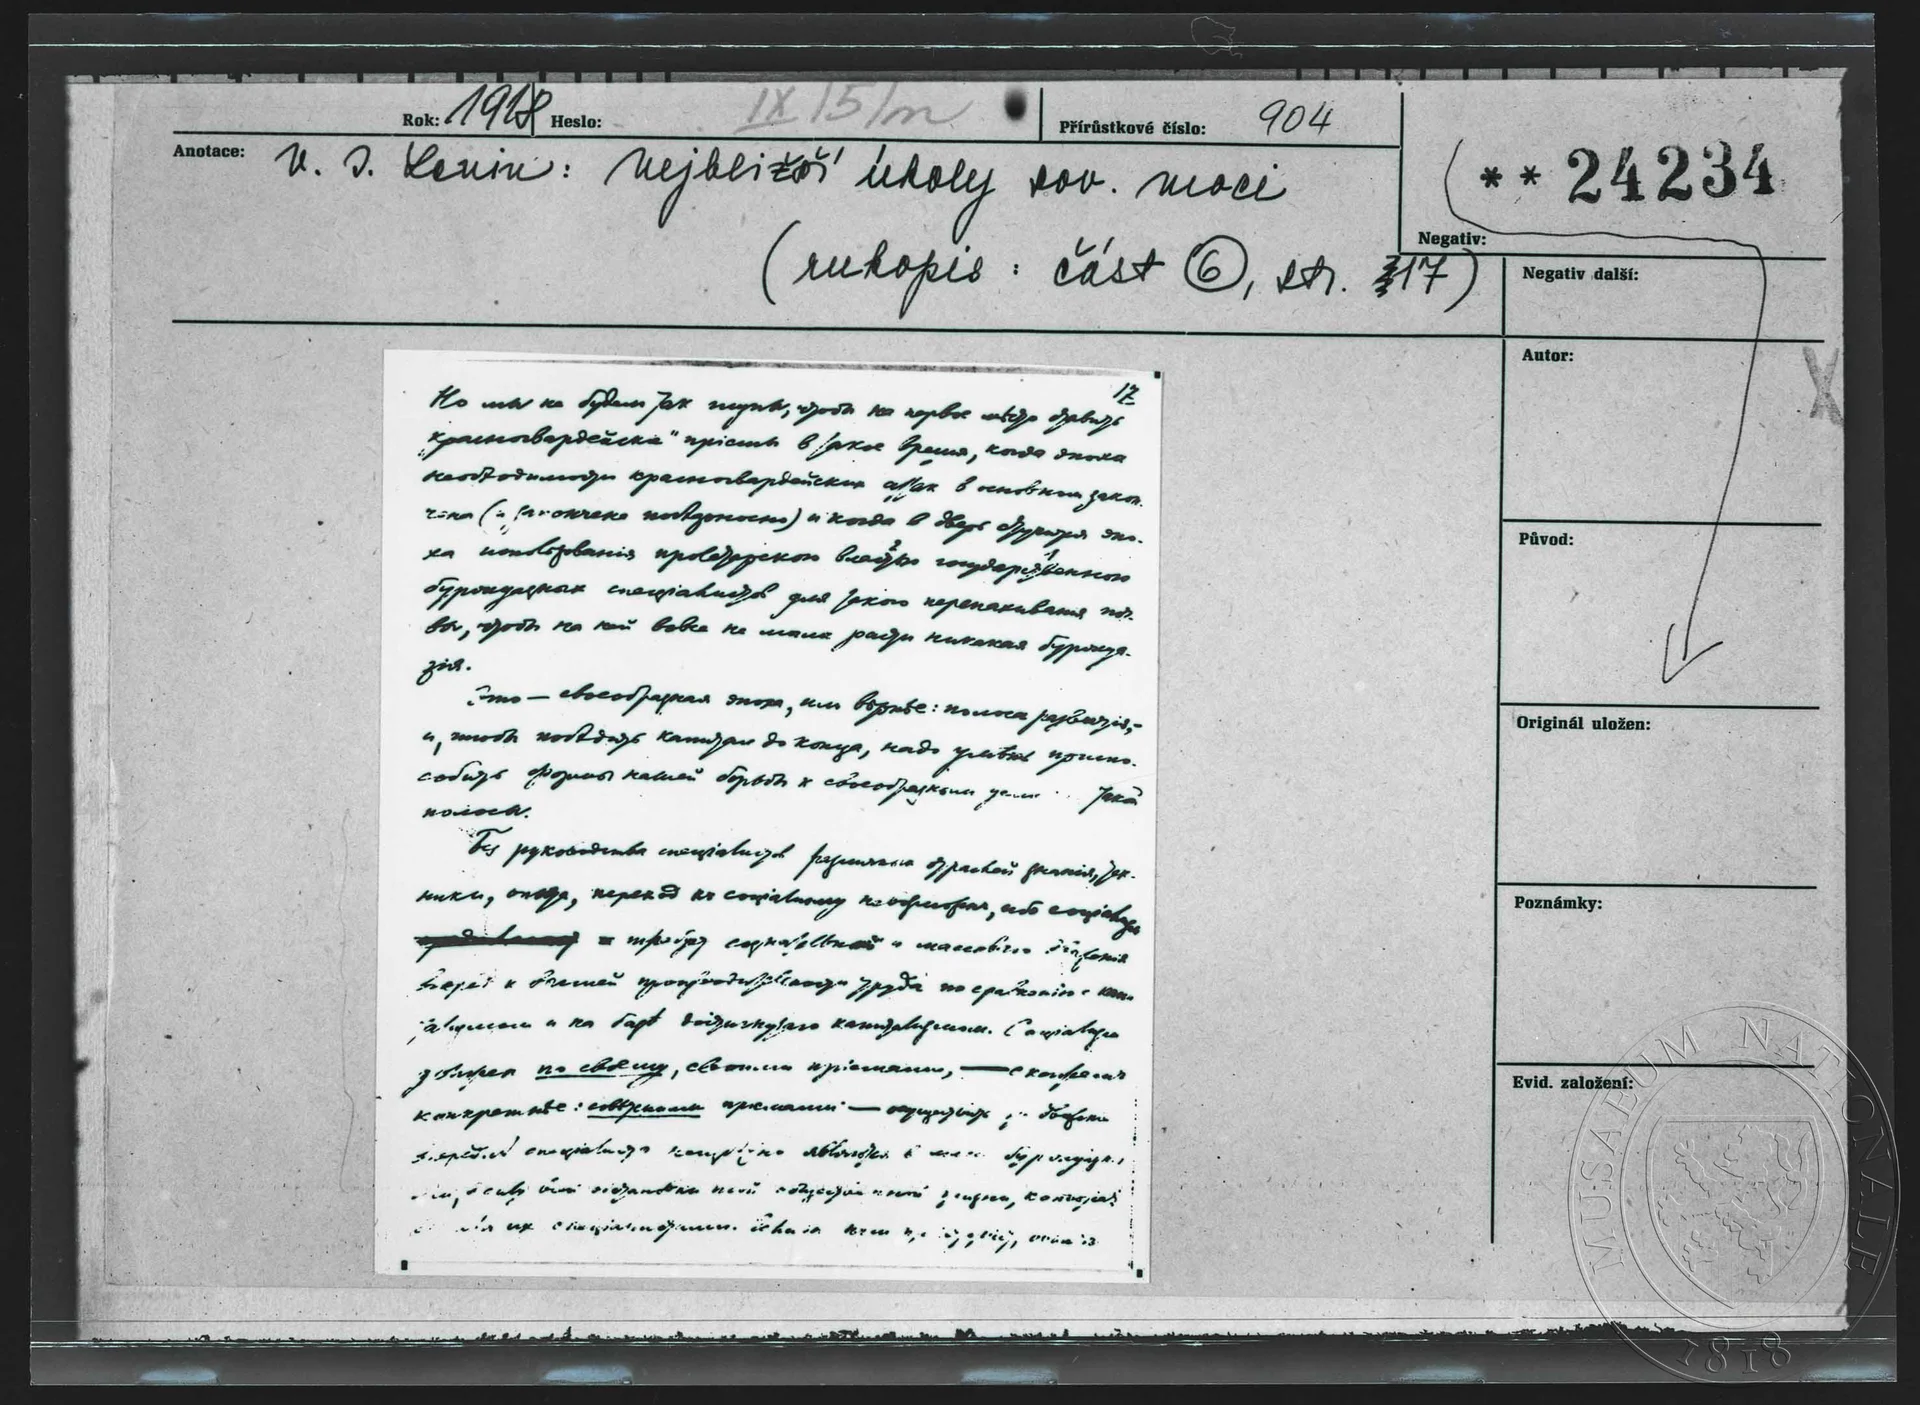 Rok: 1918 Heslo: IX/5/m Přírůstkové číslo: 904
Anotace: V. I. Lenin: Nejbližší úkoly sov. moci
(rukopis: část 6, str. 17)
**24234
Negativ:
Negativ další:
Autor:
Původ:
Originál uložen:
Poznámky:
Evid. založení:
17
Но мы не будем так глупы, чтобы на первое место ставить
„красногвардейские" пріемы в такое время, когда эпоха
необходимости красногвардейских атак в основном закон-
чена (и закончена победоносно) и когда в дверь стучится эпо-
ха использованія пролетарскою властью государственною
буржуазных специалистов для такого перепахивания поч-
вы, чтобы на ней вовсе не могла расти никакая буржуа-
зія.
Это — своеобразная эпоха, или вѣрнѣе: полоса развитія,
и, чтобы побѣдить капитал до конца, надо умѣть приспо-
собить формы нашей борьбы к своеобразным такой
полосы.
Без руководства специалистов различных отраслей знанія, тех-
ники, опыта, переход к социализму невозможен, ибо социализм
требует сознательнаго и массового движенія
вперед к высшей производительности труда по сравненію с капи-
тализмом и на базѣ достигнутаго капитализмом. Социализм
должен по своему, своими пріемами, —
конкретнѣе: совѣтскими пріемами — осуществить это движение
вперед. специалисты неизбѣжно являются в массе буржуазны
всей обстановки той общественной жизни, которая
их специалистами.
MUSAEUM NATIONALE
1818